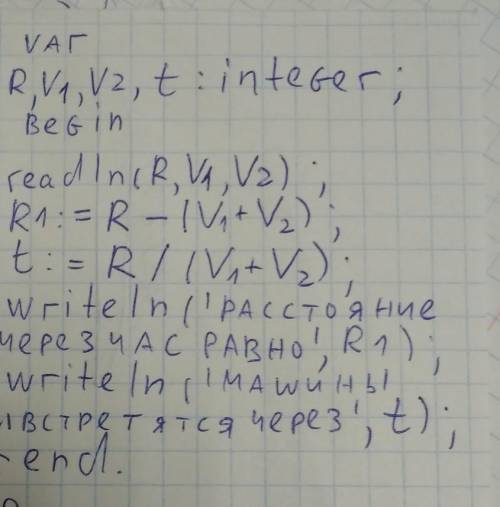 var
R, V1, V2, t : integer;
Begin
readln(R, V1, V2);
R1 := R - (V1 + V2);
t := R / (V1 + V2);
writeln('РАССТОЯНИЕ
через ЧАС РАВНО', R1);
writeln('МАШИНЫ
ВСТРЕТЯТСЯ через', t);
end.